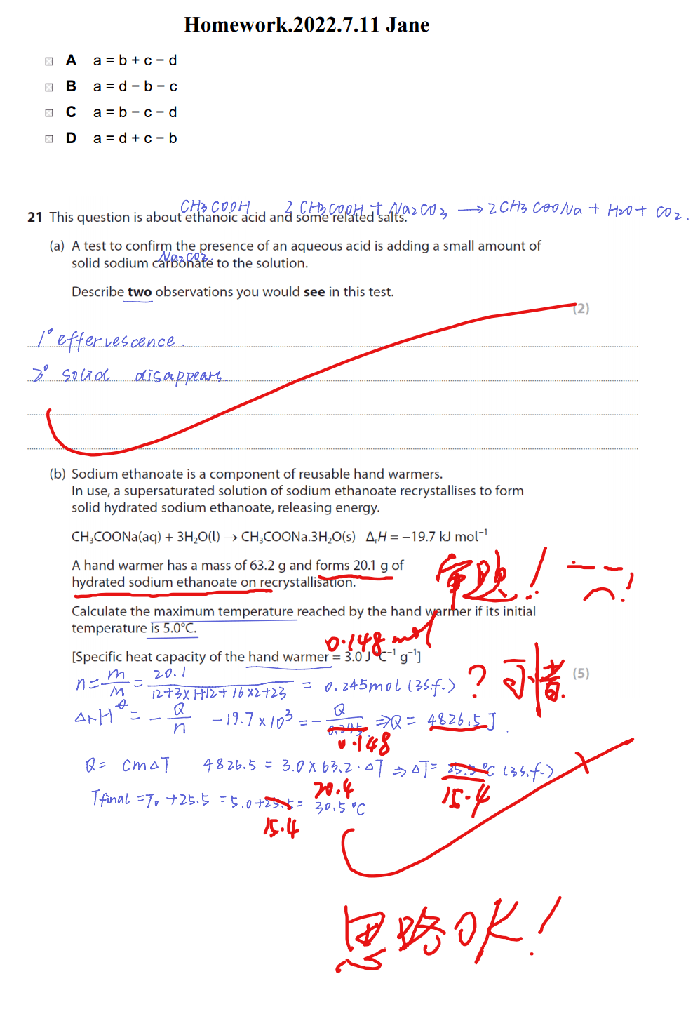 Homework.2022.7.11 Jane
A a = b + c – d
B a = d – b – c
C a = b – c – d
D a = d + c – b
CH3COOH 2CH3COOH + Na2CO3 → 2CH3COONa + H2O + CO2.
21 This question is about ethanoic acid and some related salts.
(a) A test to confirm the presence of an aqueous acid is adding a small amount of
Na2CO3
solid sodium carbonate to the solution.
Describe two observations you would see in this test.
(2)
1° effervescence.
2° solid disappears
(b) Sodium ethanoate is a component of reusable hand warmers.
In use, a supersaturated solution of sodium ethanoate recrystallises to form
solid hydrated sodium ethanoate, releasing energy.
CH₃COONa(aq) + 3H₂O(l) → CH₃COONa.3H₂O(s) ΔᵣH = −19.7 kJ mol⁻¹
A hand warmer has a mass of 63.2 g and forms 20.1 g of
hydrated sodium ethanoate on recrystallisation.
审题!
Calculate the maximum temperature reached by the hand warmer if its initial
temperature is 5.0°C.
0.148 mol
[Specific heat capacity of the hand warmer = 3.0 J °C⁻¹ g⁻¹]
(5)
n = m/M = 20.1/(12+3×1+12+16×2+23) = 0.245mol (3s.f.) ? 可惜
ΔrH° = −Q/n −19.7×10³ = −Q/0.245 ⇒ Q = 4826.5 J.
0.148
Q = cmΔT 4826.5 = 3.0×63.2·ΔT ⇒ ΔT = 25.5 °C (3s.f.)
20.4 15.4
Tfinal = T0 + 25.5 = 5.0 + 25.5 = 30.5 °C
15.4
思路OK!